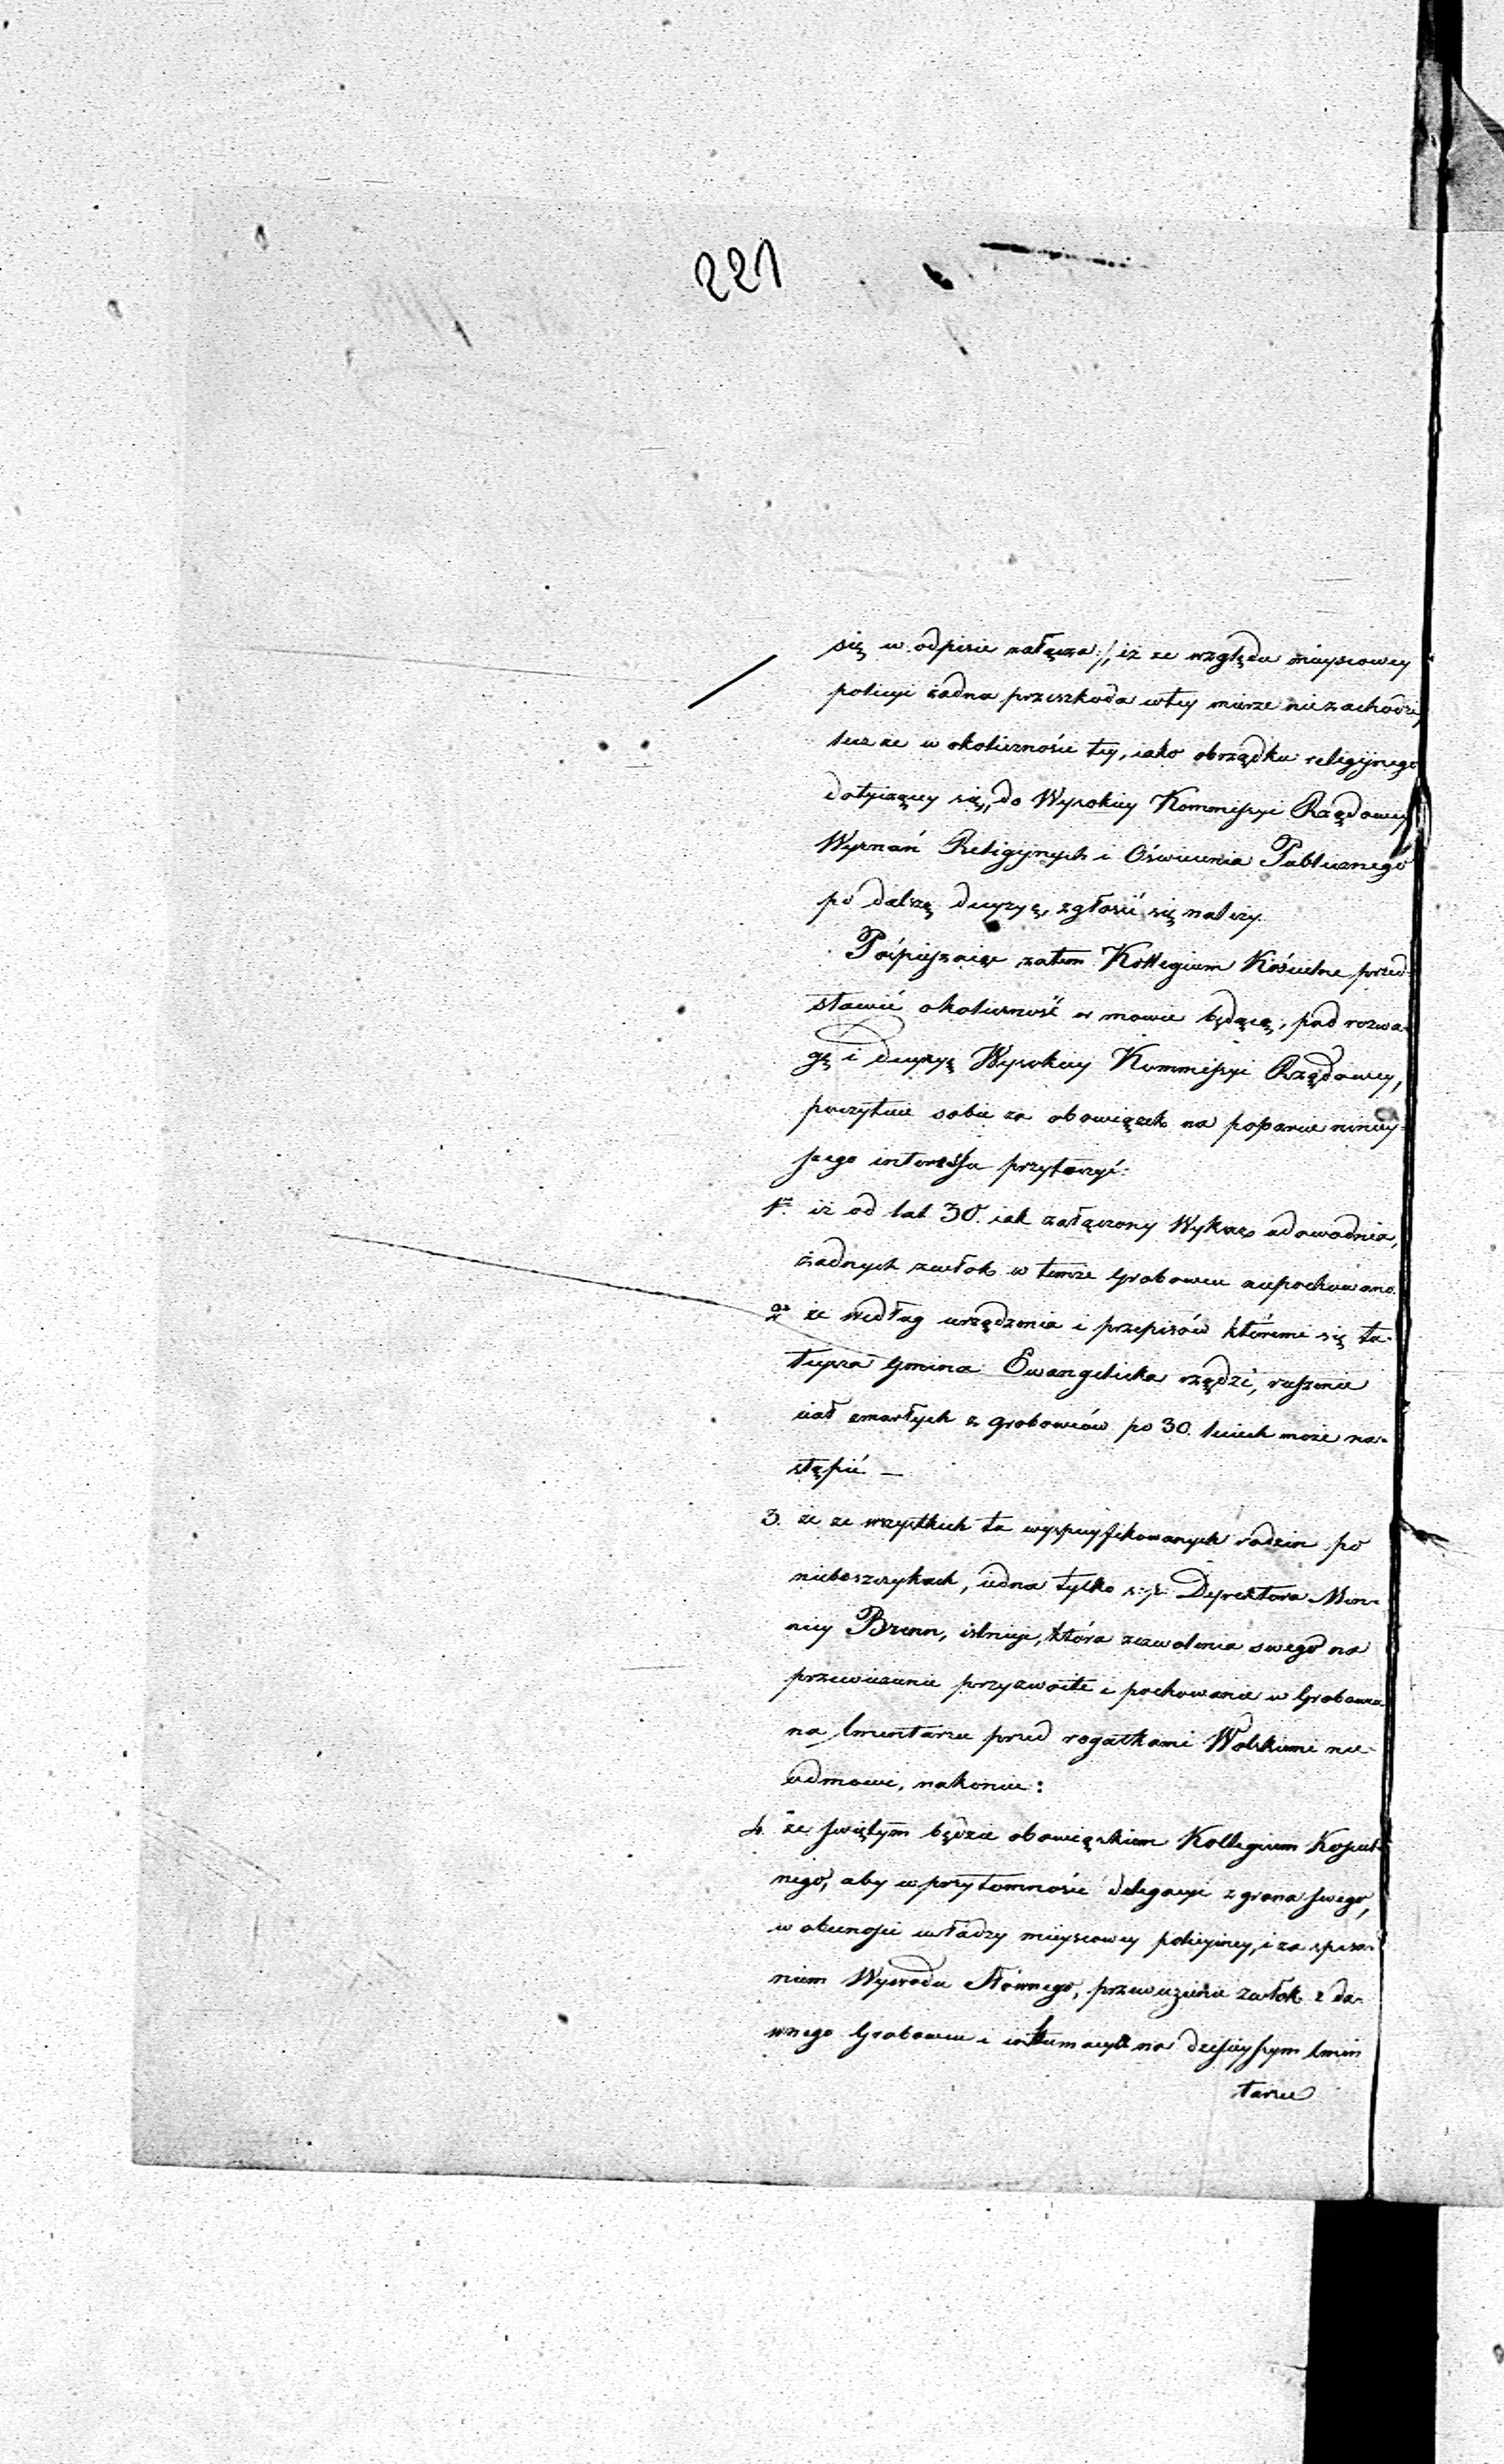 221
się w odpisie załącza:/, iż ze względu mieyscowey
policyi żadna przeszkoda w tey mierze niezachodzi,
lecz ze w okoliczności tey, iako obrządku religijnego
dotyczącey się, do Wysokiey Kommissyi Rządowey
Wyznań Religijnych i Oświecenia Publicznego
po dalszę decyzyę, zgłosić się należy.
Pośpieszaiąc zatem Kollegium Kościelne przed-
stawić okoliczność w mowie będącą, pod rozwa-
gę i decyzyę Wysokiey Kommissyi Rządowey,
poczytuie sobie za obowiązek na poparcie niniey-
szego interessu przytoczyć:
1o iż od lat 30. iak załączony Wykaz udowadnia,
żadnych zwłok w temże Grobowcu niepochowano.
2o że według urządzenia i przepisów któremi się tu-
teysza Gmina Ewangelicka rządzi, ruszenie
ciał zmarłych z grobowców po 30. leciech może na-
stąpić —
3. że ze wszystkich tu wyspecyfikowanych rodzin po
nieboszczykach, iedna tylko ś: p: Dyrektora Men-
nicy Brenn, istnieje, która zezwolenia swego na
przewiezienie przyzwoite i pochowanie w Grobowcu
na Smentarzu przed rogatkami Wolskiemi nie-
odmówi, nakoniec:
4. że świętym będzie obowiązkiem Kollegium Kościel-
nego, aby w przytomności delegacyi z grona swego,
w obecności władzy mieyscowey policyiney, i za spisa-
niem Wywodu Słownego, przewiezienie zwłok z da-
wnego Grobowcu i intumacya na dzisieyszym Smen
tarzu